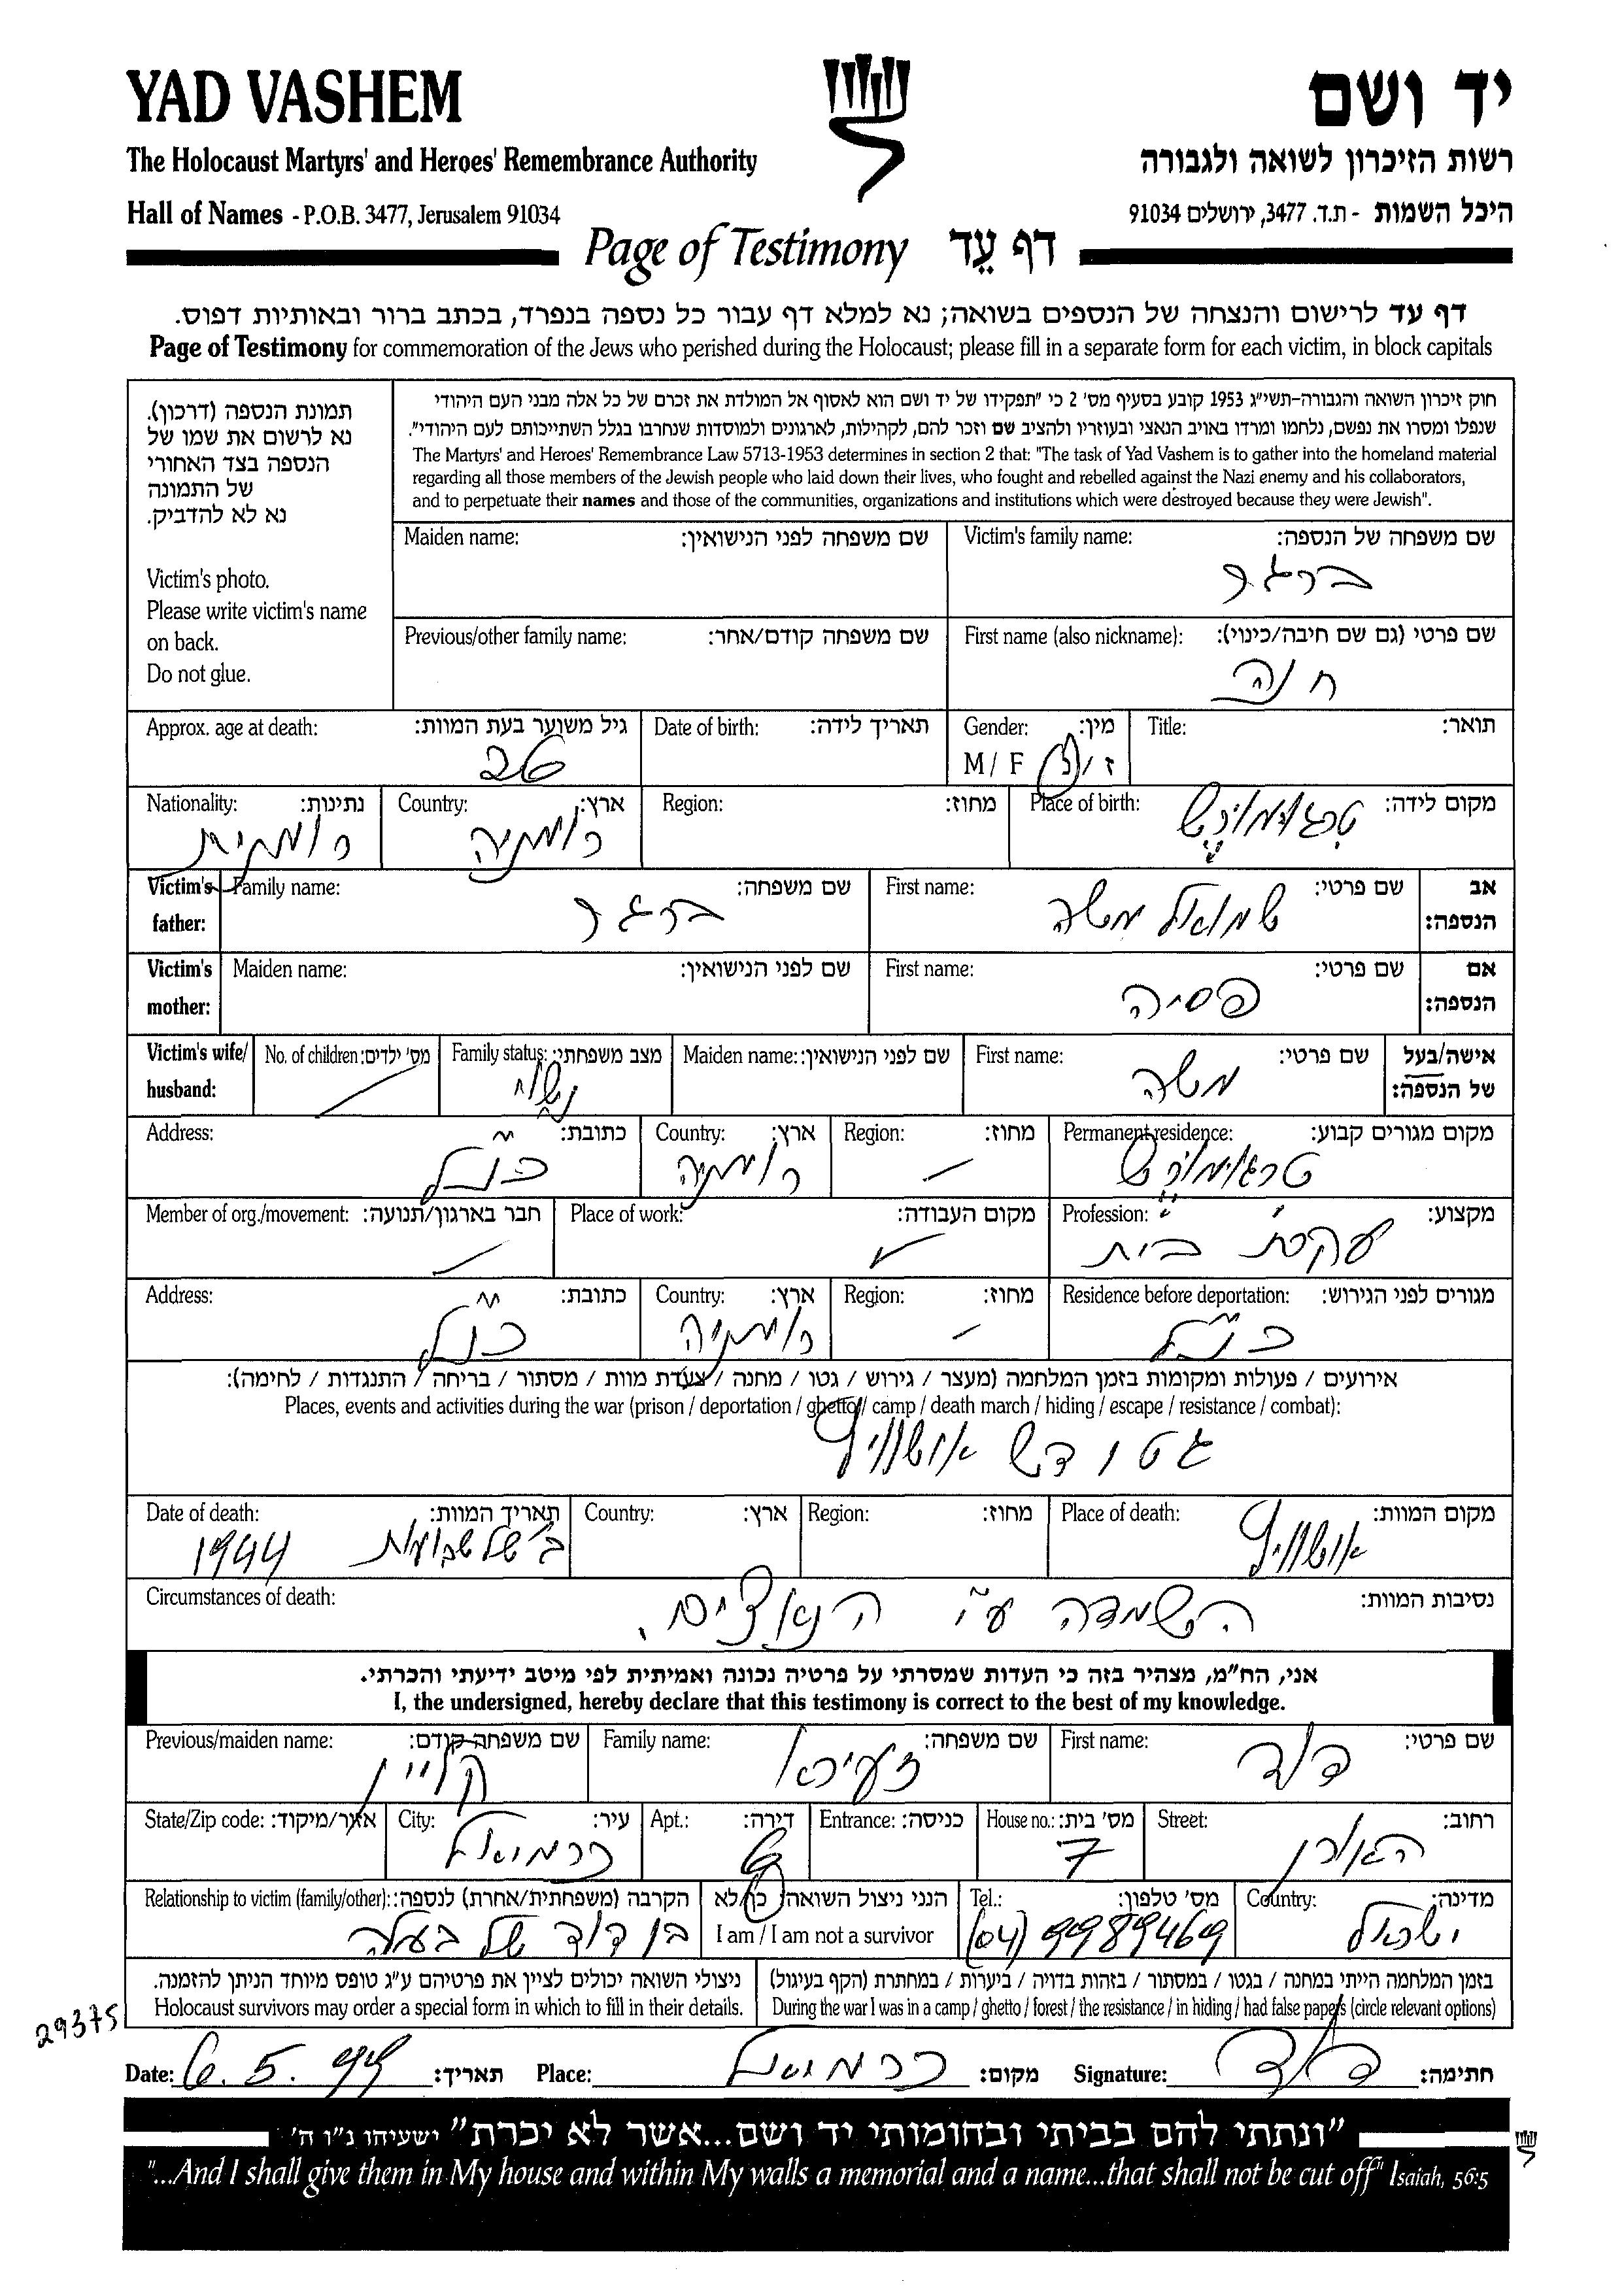 YAD VASHEM
יד ושם
The Holocaust Martyrs' and Heroes' Remembrance Authority
רשות הזיכרון לשואה ולגבורה
Hall of Names - P.O.B. 3477, Jerusalem 91034
היכל השמות - ת.ד. 3477, ירושלים 91034
Page of Testimony דף עֵד
דף עד לרישום והנצחה של הנספים בשואה; נא למלא דף עבור כל נספה בנפרד, בכתב ברור ובאותיות דפוס.
Page of Testimony for commemoration of the Jews who perished during the Holocaust; please fill in a separate form for each victim, in block capitals
תמונת הנספה (דרכון).
נא לרשום את שמו של
הנספה בצד האחורי
של התמונה
נא לא להדביק.
Victim's photo.
Please write victim's name
on back.
Do not glue.
חוק זיכרון השואה והגבורה-תשי"ג 1953 קובע בסעיף מס' 2 כי "תפקידו של יד ושם הוא לאסוף אל המולדת את זכרם של כל אלה מבני העם היהודי
שנפלו ומסרו את נפשם, נלחמו ומרדו באויב הנאצי ובעוזריו ולהציב שם וזכר להם, לקהילות, לארגונים ולמוסדות שנחרבו בגלל השתייכותם לעם היהודי".
The Martyrs' and Heroes' Remembrance Law 5713-1953 determines in section 2 that: "The task of Yad Vashem is to gather into the homeland material
regarding all those members of the Jewish people who laid down their lives, who fought and rebelled against the Nazi enemy and his collaborators,
and to perpetuate their names and those of the communities, organizations and institutions which were destroyed because they were Jewish".
Victim's family name: שם משפחה של הנספה:
ברגר
Maiden name: שם משפחה לפני הנישואין:
First name (also nickname): שם פרטי (גם שם חיבה/כינוי):
חנה
Previous/other family name: שם משפחה קודם/אחר:
Title: תואר:
Gender: מין:
M / F ז / נ
Date of birth: תאריך לידה:
Approx. age at death: גיל משוער בעת המוות:
26
Place of birth: מקום לידה:
טרגומורש
Region: מחוז:
Country: ארץ:
רומניה
Nationality: נתינות:
רומנית
Victim's father: אב הנספה:
First name: שם פרטי:
שמואל משה
Family name: שם משפחה:
ברגר
Victim's mother: אם הנספה:
First name: שם פרטי:
פסיה
Maiden name: שם לפני הנישואין:
Victim's wife/ husband: אישה/בעל של הנספה:
First name: שם פרטי:
משה
Maiden name: שם לפני הנישואין:
Family status: מצב משפחתי:
No. of children: מס' ילדים:
Permanent residence: מקום מגורים קבוע:
טרגומורש
Region: מחוז:
Country: ארץ:
רומניה
Address: כתובת:
כנ"ל
Profession: מקצוע:
עקרת בית
Place of work: מקום העבודה:
Member of org./movement: חבר בארגון/תנועה:
Residence before deportation: מגורים לפני הגירוש:
כנ"ל
Region: מחוז:
Country: ארץ:
רומניה
Address: כתובת:
כנ"ל
אירועים / פעולות ומקומות בזמן המלחמה (מעצר / גירוש / גטו / מחנה / צעדת מוות / מסתור / בריחה / התנגדות / לחימה):
Places, events and activities during the war (prison / deportation / ghetto / camp / death march / hiding / escape / resistance / combat):
גטו דש אושוויץ
Place of death: מקום המוות:
אושוויץ
Region: מחוז:
Country: ארץ:
Date of death: תאריך המוות:
ב' של שבועות 1944
Circumstances of death: נסיבות המוות:
השמדה ע"י הנאצים.
אני, הח"מ, מצהיר בזה כי העדות שמסרתי על פרטיה נכונה ואמיתית לפי מיטב ידיעתי והכרתי.
I, the undersigned, hereby declare that this testimony is correct to the best of my knowledge.
First name: שם פרטי:
דוד
Family name: שם משפחה:
זעירא
Previous/maiden name: שם משפחה קודם:
קליין
Street: רחוב:
האורן
House no.: מס' בית:
7
Entrance: כניסה:
Apt.: דירה:
6
City: עיר:
כרמיאל
State/Zip code: אזור/מיקוד:
Country: מדינה:
ישראל
Tel.: מס' טלפון:
(04) 9989469
הנני ניצול השואה: כן/לא
I am / I am not a survivor
Relationship to victim (family/other): הקרבה (משפחתית/אחרת) לנספה:
בן דוד של בעלה
בזמן המלחמה הייתי במחנה / בגטו / במסתור / בזהות בדויה / ביערות / במחתרת (הקף בעיגול)
During the war I was in a camp / ghetto / forest / the resistance / in hiding / had false papers (circle relevant options)
ניצולי השואה יכולים לציין את פרטיהם ע"ג טופס מיוחד הניתן להזמנה.
Holocaust survivors may order a special form in which to fill in their details.
29375
Date: 6.5.99 תאריך: Place: כרמיאל מקום: Signature: דוד חתימה:
"ונתתי להם בביתי ובחומותי יד ושם...אשר לא יכרת" ישעיהו נ"ו ה'
"...And I shall give them in My house and within My walls a memorial and a name...that shall not be cut off" Isaiah, 56:5